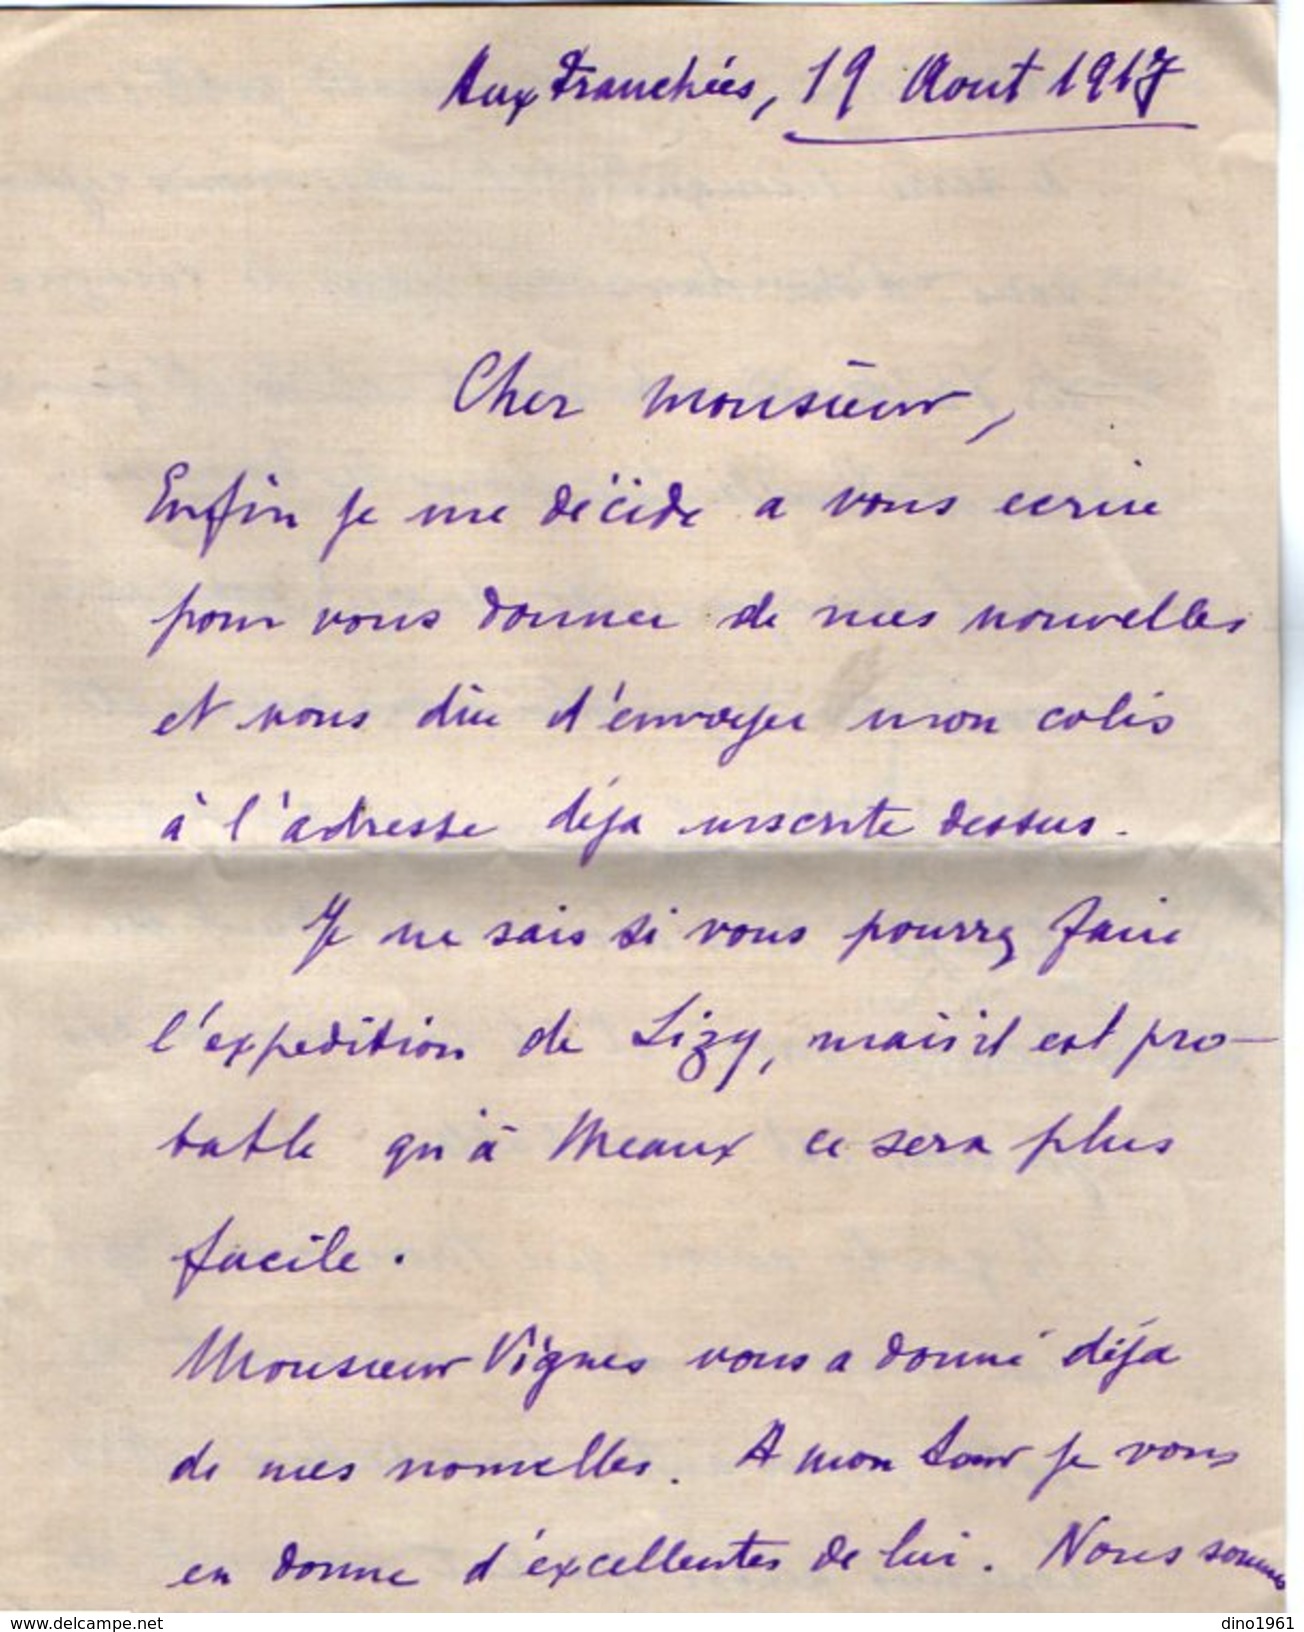 Aux Tranchées, 19 Aout 1917
Cher Monsieur,
Enfin je me décide a vous ecrire
pour vous donner de mes nouvelles
et vous dire d'envoyer mon colis
à l'adresse déja inscrite dessus.
Je ne sais si vous pourrez faire
l'expedition de Lizy, mais il est pro-
bable qu'à Meaux ce sera plus
facile.
Monsieur Vignes vous a donné déja
de mes nouvelles. A mon tour je vous
en donne d'éxcellentes de lui. Nous sommes
www.delcampe.net
dino1961